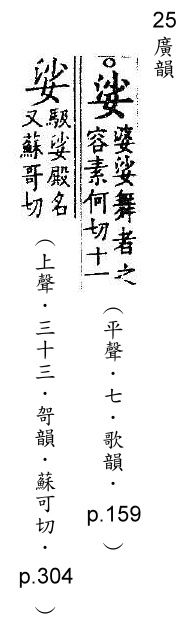 25
廣韻
。娑 婆娑舞者之
容素何切十一
（平聲．七．歌韻．
p.159
）
娑 馺娑殿名
又蘇哥切
（上聲．三十三．哿韻．蘇可切．
p.304
）